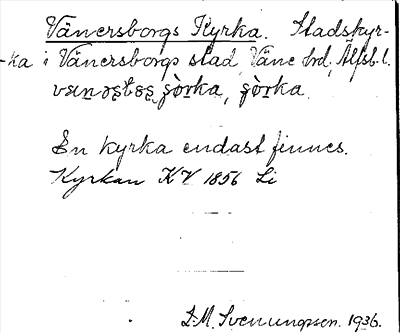 Vänersborgs Kyrka. Stadskyr-
-ka i Vänersborgs stad, Väne hd, Älfsb. l.
En kyrka endast finnes.
Kyrkan KV 1856 Li
S.M. Svenungsson. 1936.